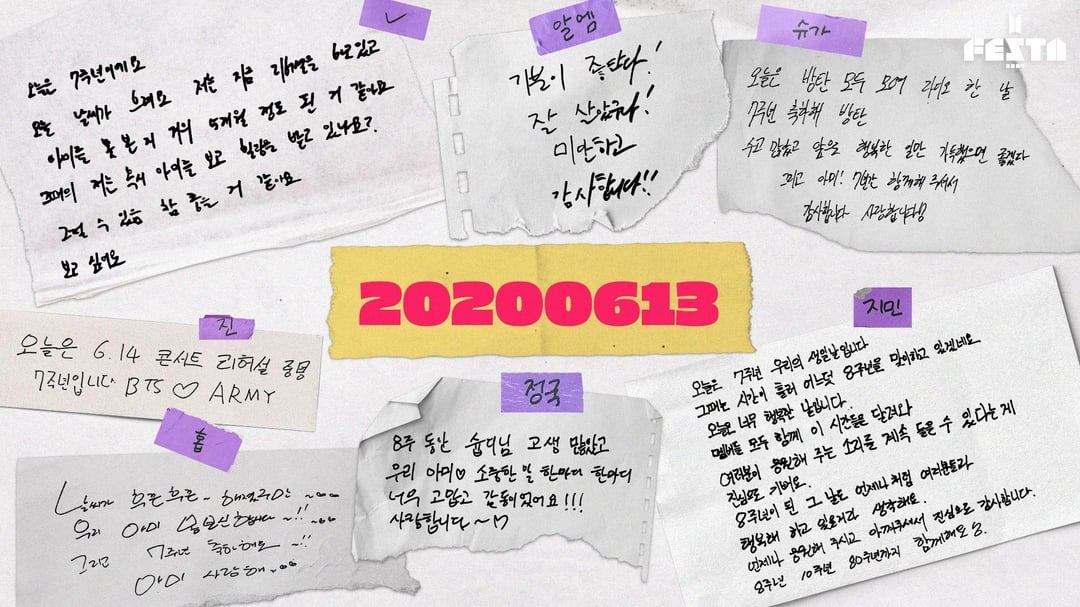 V
오늘은 7주년이에요
오늘 날씨가 흐려요 저는 지금 리허설을 하고 있고
아미를 못 본 지 거의 5개월 정도 된 거 같아요
그때의 저는 혹시 아미를 보고 힘을 받고 있나요?
그럴 수 있음 참 좋을 거 같아요
보고 싶어요
알엠
기분이 좋탄다!
잘 살았구나!
미안하고
감사합니다!!
슈가
오늘은 방탄 모두 모여 라디오 한 날
7주년 축하해 방탄
수고 많았고 앞을 행복한 일만 가득했으면 좋겠다
그리고 아미! 7년간 함께해 주셔서
감사합니다 사랑합니다
FESTA
20200613
진
오늘은 6.14 콘서트 리허설 중명
7주년입니다 BTS ♡ ARMY
홉
날씨가 흐른흐른~
우리 아미 ~!!
그리고 7주년 축하해요 ~!!
아미 사랑해~
정국
8주 동안 숩디님 고생 많았고
우리 아미♡ 소중한 말 한마디 한마디
너무 고맙고 감동이었어요!!!
사랑합니다~
지민
오늘은 7주년 우리의 생일날입니다
그때는 시간이 흘러 어느덧 8주년을 맞이하고 있겠네요
오늘은 너무 행복한 날입니다.
멤버들 모두 함께 이 시간들을 달려와
여러분이 응원해 주는 소리를 계속 들을 수 있다는 게
진심으로 기뻐요.
8주년이 된 그 날도 언제나처럼 여러분들과
행복해 하고 있을거라 생각해요.
언제나 응원해 주시고 아껴주셔서 진심으로 감사합니다.
8주년 10주년 80주년까지 함께해요